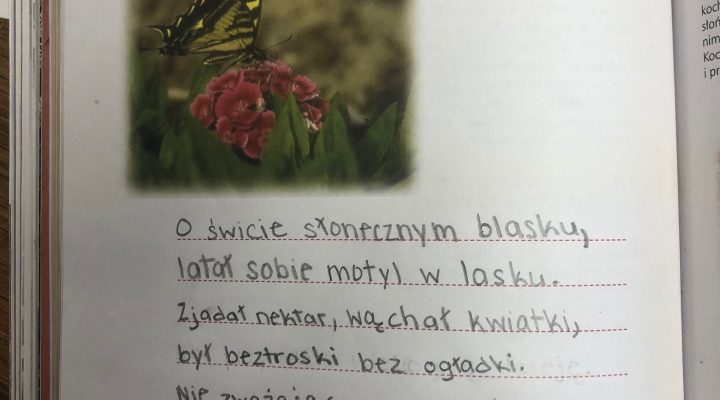 O świcie słonecznym blasku,
latał sobie motyl w lasku.
Zjadał nektar, wąchał kwiatki,
był beztroski bez ogładki.
Nie zważając
koch
słoń
nim
Koc
i pr